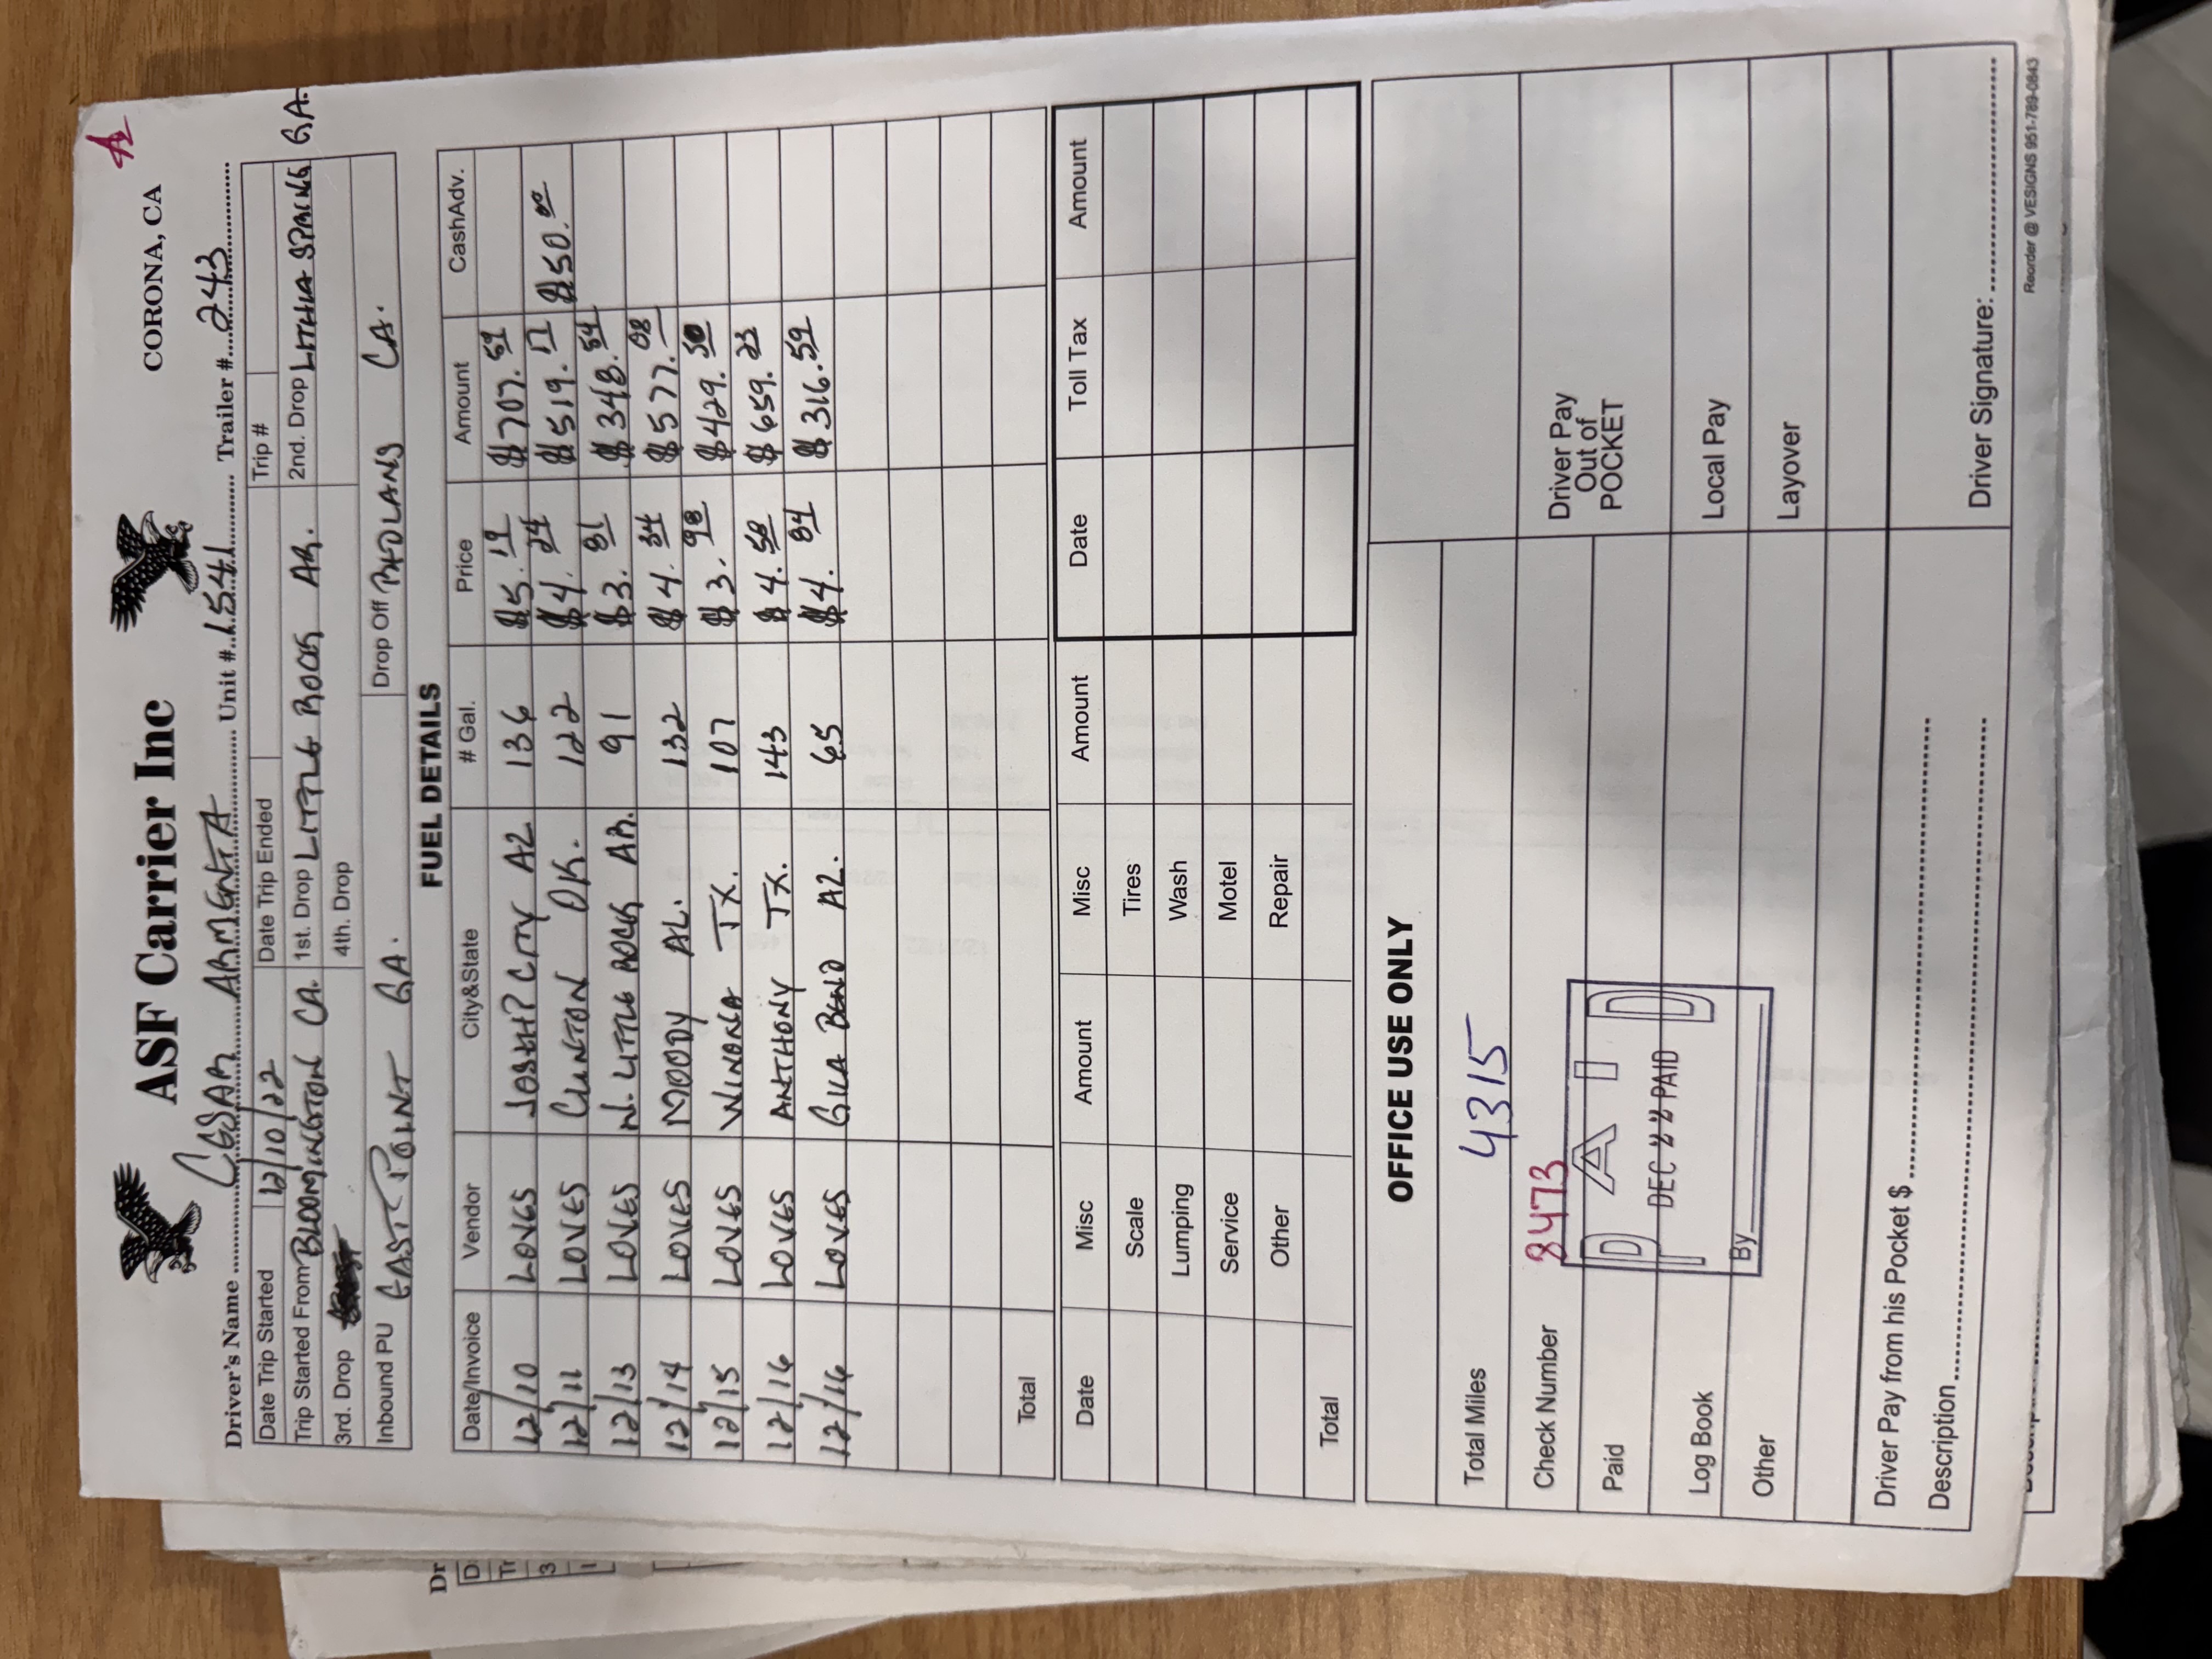 A2
ASF Carrier Inc
CORONA, CA
Driver's Name CESAR ARMENTA Unit # 1541 Trailer # 243
Date Trip Started 12/10/22 Date Trip Ended Trip #
Trip Started From BLOOMINGTON CA. 1st. Drop LITTLE ROCK AR. 2nd. Drop LITHIA SPRING GA.
3rd. Drop 4th. Drop
Inbound PU EAST POINT GA. Drop Off REDLANS CA.
FUEL DETAILS
Date/Invoice Vendor City&State # Gal. Price Amount CashAdv.
12/10 LOVES JOSEPH CITY AZ 136 $5.19 $707.59
12/11 LOVES CLINTON OK. 122 $4.24 $519.17 $50.00
12/13 LOVES N. LITTLE ROCK AR. 91 $3.81 $348.54
12/14 LOVES MOODY AL. 132 $4.34 $577.08
12/15 LOVES WINONA TX. 107 $3.98 $429.50
12/16 LOVES ANTHONY TX. 143 $4.58 $659.23
12/16 LOVES GILA BEND AZ. 65 $4.84 $316.59
Total
Date Misc Amount Misc Amount Date Toll Tax Amount
Scale Tires
Lumping Wash
Service Motel
Other Repair
Total
OFFICE USE ONLY
Total Miles 4315
Check Number 8473
Paid
PAID
DEC 22 PAID
By
Log Book
Other
Driver Pay
Out of
POCKET
Local Pay
Layover
Driver Pay from his Pocket $
Description
Driver Signature:
Reorder @ VESIGNS 951-789-0843